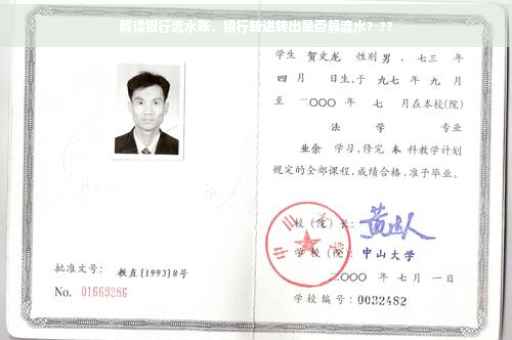 解读银行流水账：银行转进转出是否算流水？??
学生 贺文龙 性别 男，七三 年
四 月 日生，于 九七 年 九 月
至 二〇〇〇 年 七 月在本校(院)
法 学 专业
业余 学习，修完 本 科教学计划
规定的全部课程，成绩合格，准予毕业。
校 (院) 长：
学 校 (院)：中山大学
二〇〇〇 年 七 月 一 日
学校编号：0032482
批准文号：教直[1993]8号
No. 01663286